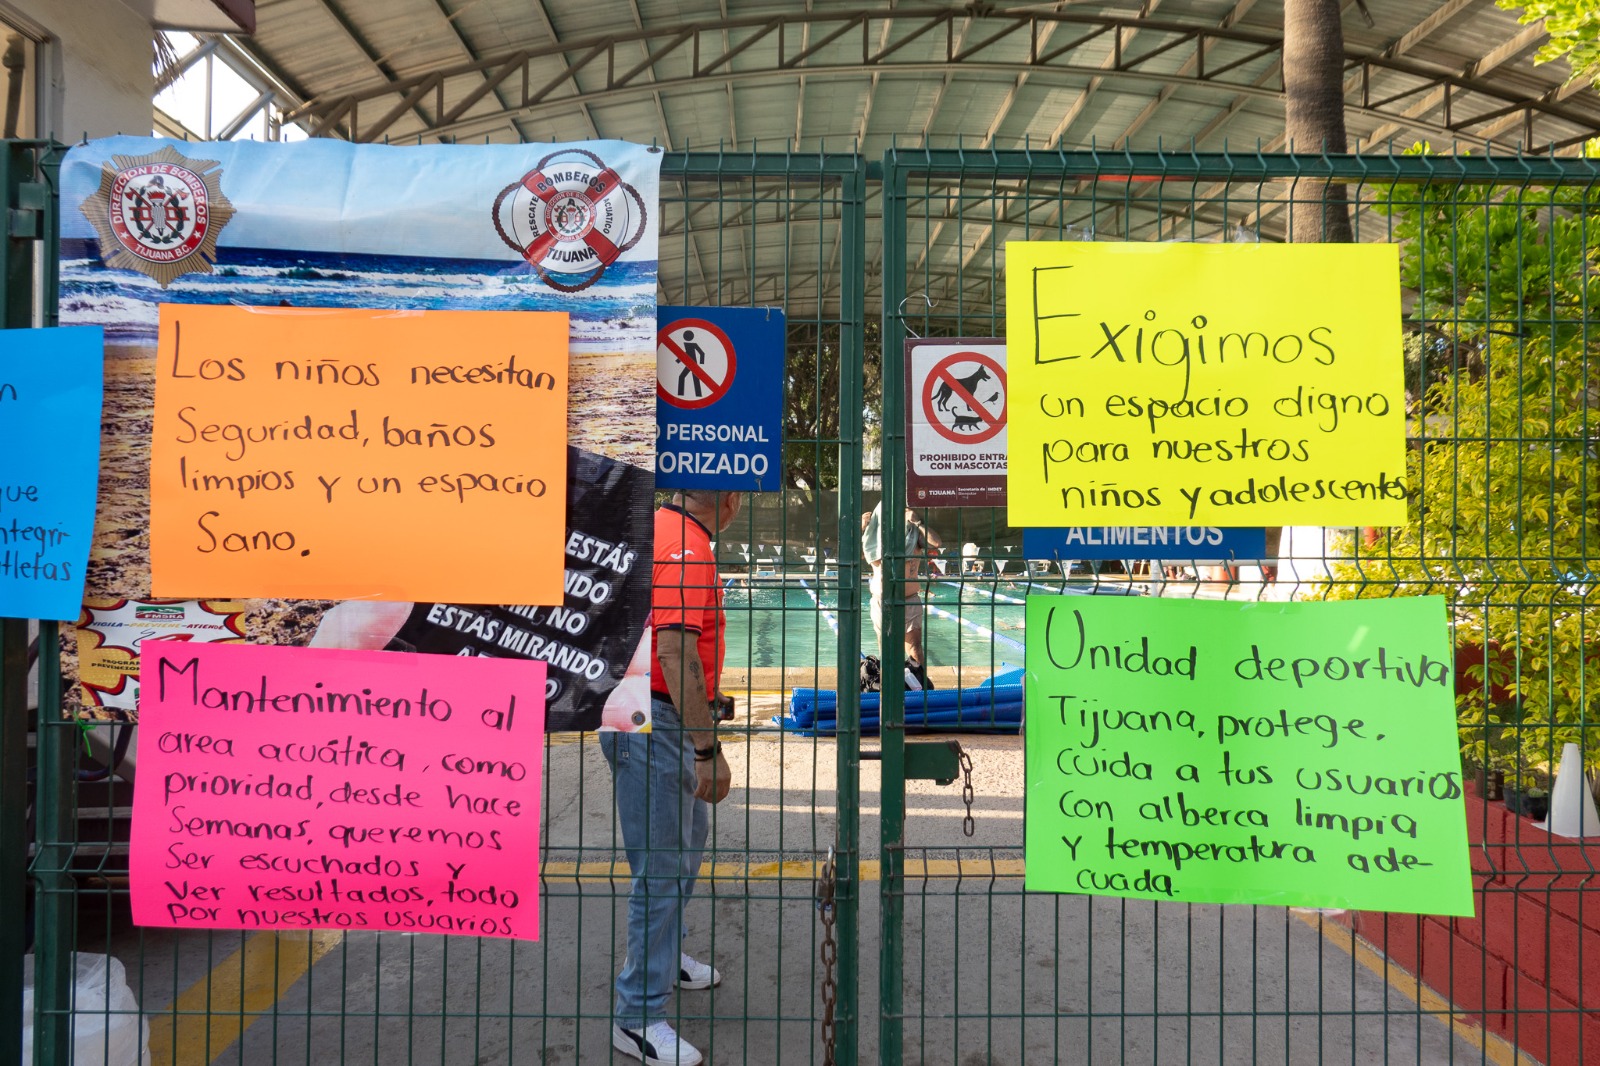 DIRECCIÓN DE BOMBEROS
TIJUANA B.C.
BOMBEROS
RESCATE
ACUATICO
TIJUANA
Los niños necesitan
Seguridad, baños
limpios y un espacio
Sano.
que
ntegri-
tletas
ESTÁS
NDO
MI NO
ESTÁS MIRANDO
FMSRA
VIGILA-PREVIENE-ATIENDE
Mantenimiento al
area acuática, como
prioridad, desde hace
Semanas, queremos
Ser escuchados y
Ver resultados, todo
por nuestros usuarios.
PERSONAL
TORIZADO
PROHIBIDO ENTRA
CON MASCOTAS
TIJUANA
Exigimos
un espacio digno
para nuestros
niños y adolescentes
ALIMENTOS
Unidad deportiva
Tijuana, protege.
Cuida a tus usuarios
Con alberca limpia
y temperatura ade-
cuada.